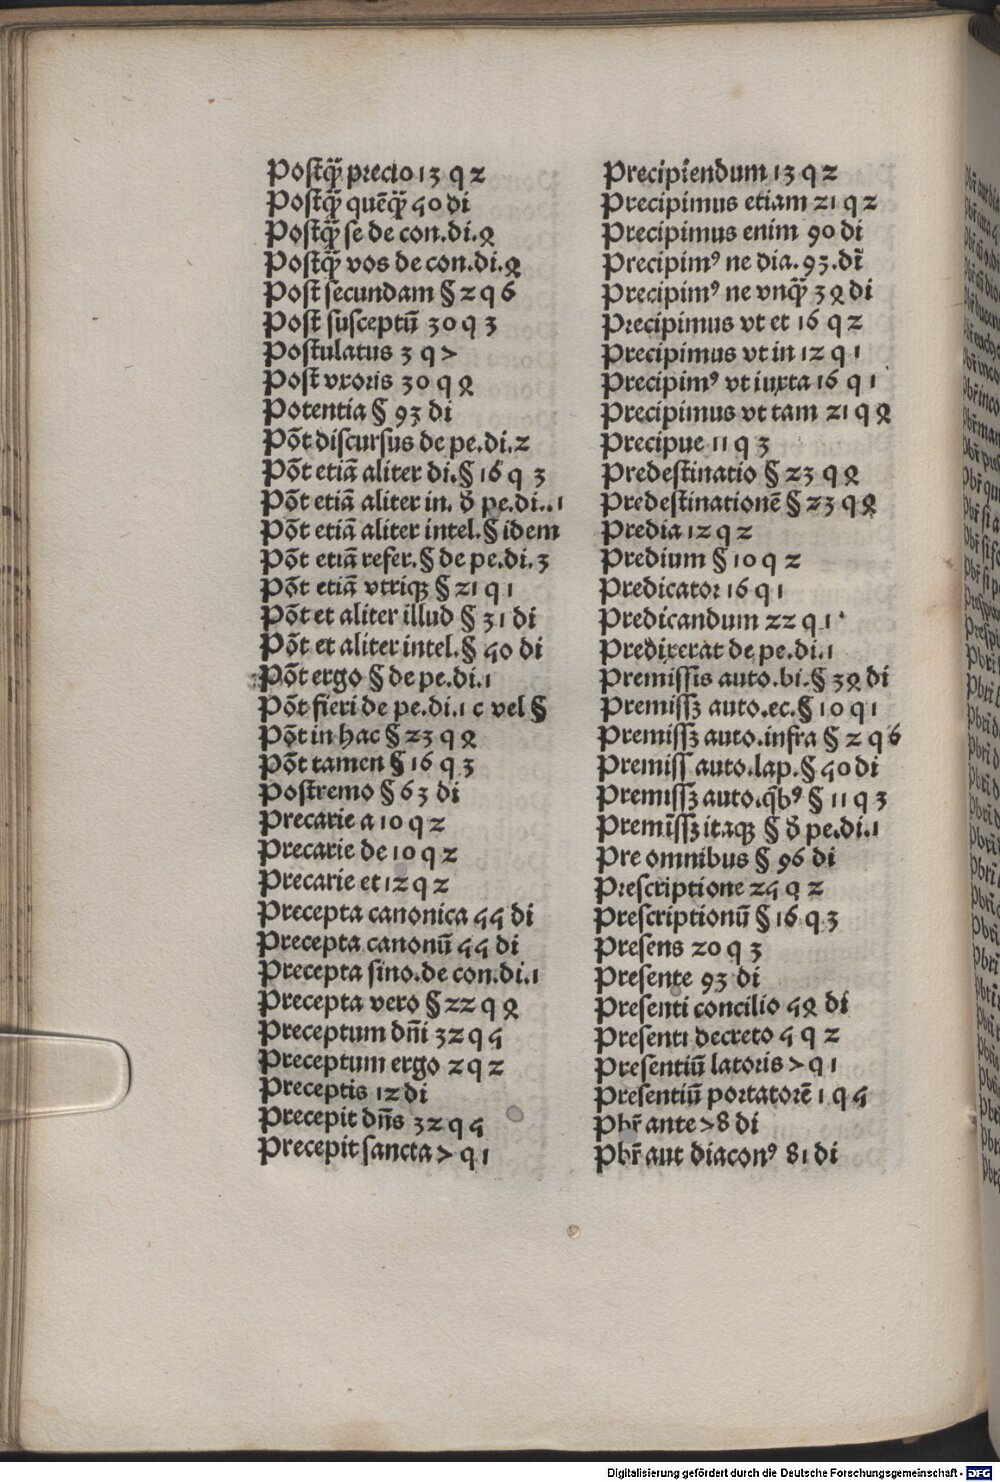 Postq̄ꝫ precio 13 q 2
Postq̄ꝫ quēq̄ꝫ 40 di
Postq̄ꝫ se de con.di.4
Postq̄ꝫ vos de con.di.4
Post secundam § 2 q 6
Post susceptū 30 q 3
Postulatus 3 q 7
Post vxoris 30 q 4
Potentia § 93 di
Põt discursus de pe.di.2
Põt etiā aliter di.§ 16 q 3
Põt etiā aliter in. ð pe.di..1
Põt etiā aliter intel.§ idem
Põt etiā refer.§ de pe.di.3
Põt etiā vtriqꝫ § 21 q 1
Põt et aliter illud § 31 di
Põt et aliter intel.§ 40 di
Põt ergo § de pe.di.1
Põt fieri de pe.di.1 c vel §
Põt in hac § 23 q 4
Põt tamen § 16 q 3
Postremo § 63 di
Precarie a 10 q 2
Precarie de 10 q 2
Precarie et 12 q 2
Precepta canonica 44 di
Precepta canonū 44 di
Precepta sino.de con.di.1
Precepta vero § 22 q 4
Preceptum dñi 32 q 4
Preceptum ergo 2 q 2
Preceptis 12 di
Precepit dñs 32 q 4
Precepit sancta 7 q 1
Precipiendum 13 q 2
Precipimus etiam 21 q 2
Precipimus enim 90 di
Precipimꝰ ne dia.93.di
Precipimꝰ ne vnq̄ꝫ 34 di
Precipimus vt et 16 q 2
Precipimus vt in 12 q 1
Precipimꝰ vt iuxta 16 q 1
Precipimus vt tam 21 q 4
Precipue 11 q 3
Predestinatio § 23 q 4
Predestinationē § 23 q 4
Predia 12 q 2
Predium § 10 q 2
Predicator 16 q 1
Predicandum 22 q 1
Predixerat de pe.di.1
Premissis auto.bi.§ 34 di
Premissꝫ auto.ec.§ 10 q 1
Premissꝫ auto.infra § 2 q 6
Premiss auto.lap.§ 40 di
Premissꝫ auto.q̄bꝰ § 11 q 3
Premissꝫ itaqꝫ § ð pe.di.1
Pre omnibus § 96 di
Prescriptione 24 q 2
Prescriptionū § 16 q 3
Presens 20 q 3
Presente 93 di
Presenti concilio 44 di
Presenti decreto 4 q 2
Presentiū latoris 7 q 1
Presentiū portatorē 1 q 4
Pbr̄ ante 78 di
Pbr̄ aut diaconꝰ 81 di
Digitalisierung gefördert durch die Deutsche Forschungsgemeinschaft - DFG